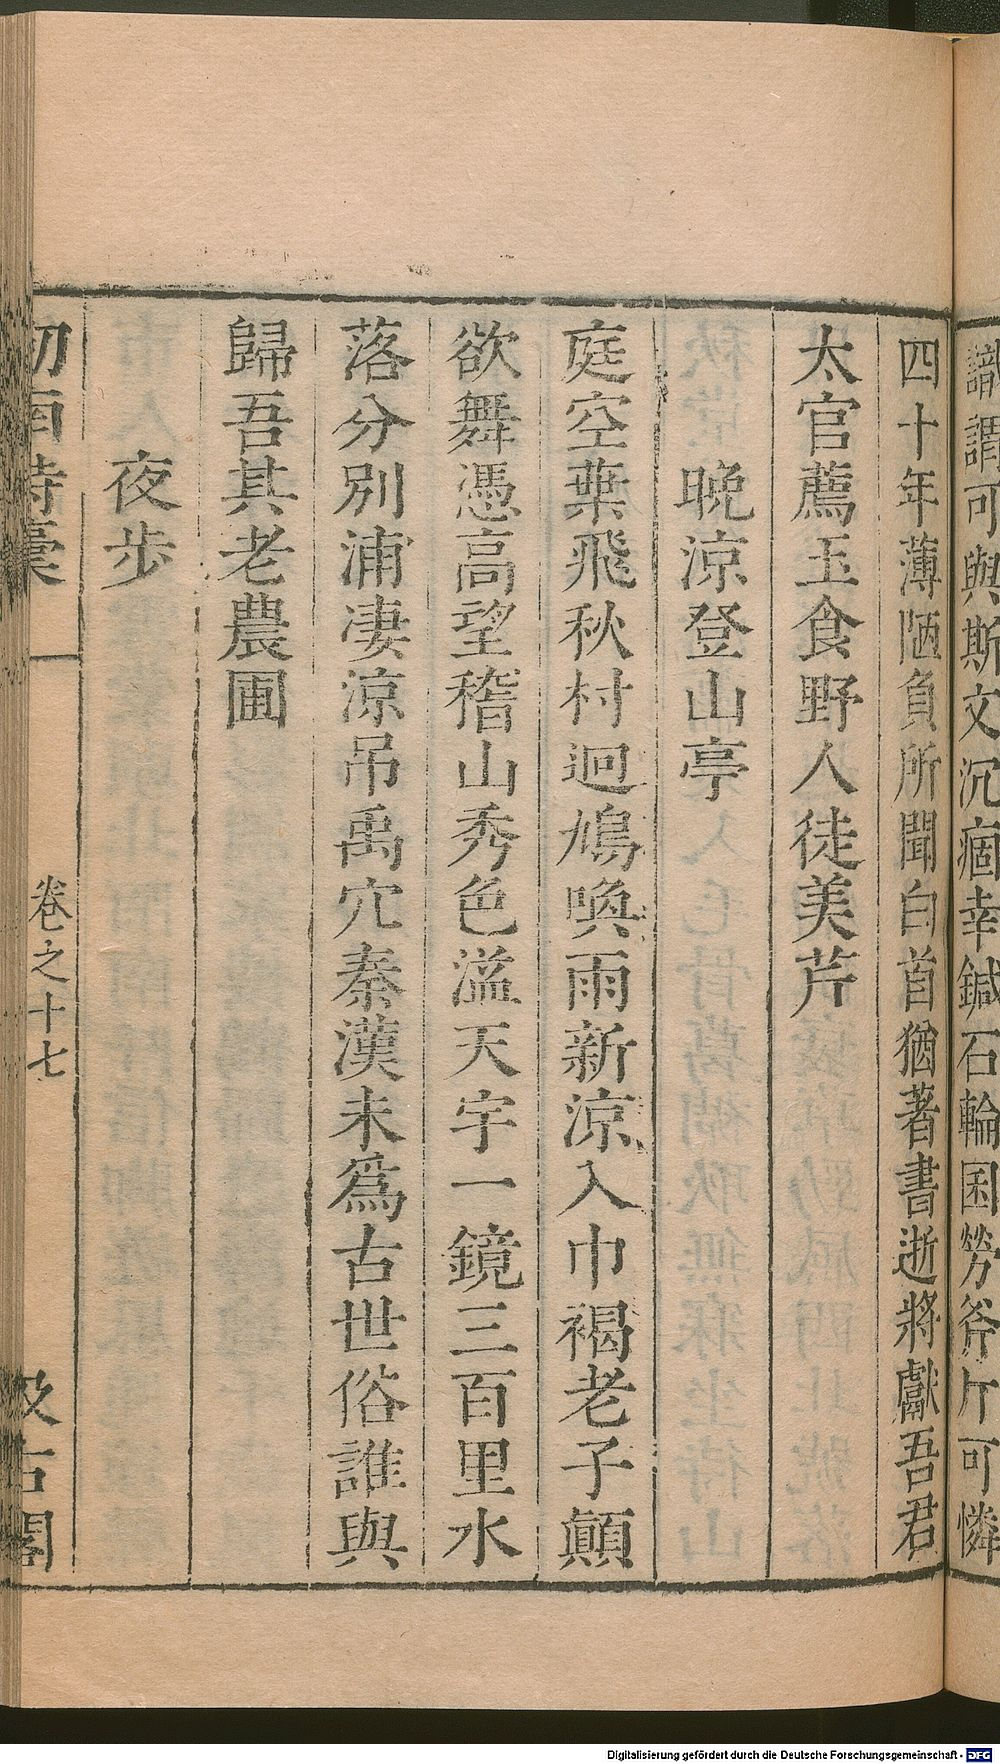 識謂可與斯文沉痼幸鍼石輪囷勞斧斤可憐
四十年薄陋負所聞白首猶著書逝將獻吾君
太官薦玉食野人徒美芹
晚涼登山亭
庭空葉飛秋村迥鳩喚雨新涼入巾褐老子顛
欲舞憑高望稽山秀色溢天宇一鏡三百里水
落分別浦凄涼吊禹穴秦漢未爲古世俗誰與
歸吾其老農圃
夜步
劍南詩稾 卷之十七 汲古閣
Digitalisierung gefördert durch die Deutsche Forschungsgemeinschaft - DFG